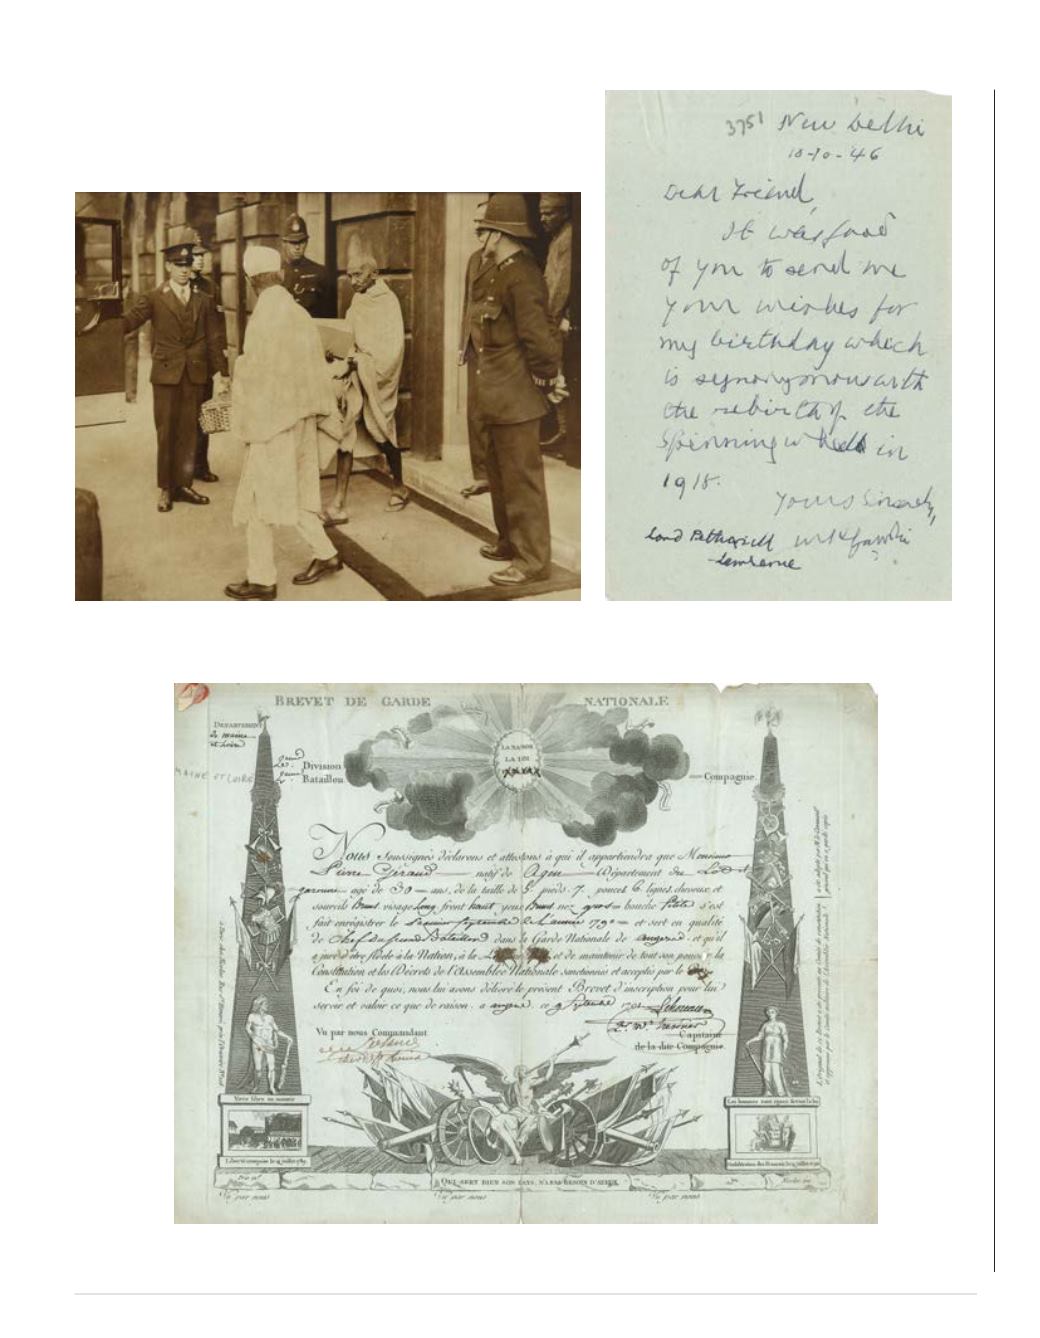 3751 New Delhi
10-10-46
Dear Friend,
It was good
of you to send me
your wishes for
my birthday which
is synonymous with
the rebirth of the
Spinning wheel in
1918.
Yours Sincerely,
Lord Pethwick MKGandhi
Lawrence
BREVET DE GARDE NATIONALE
DÉPARTEMENT
de maine
et Loire
MAINE ET LOIRE
Division
Bataillon
LA NATION
LA LOI
Compagnie.
Nous Soussignés déclarons et attestons à qui il appartiendra que Monsieur
Pierre Giraud natif de Agen Département du Lot et
garonne agé de 30 ans, de la taille de 5 pieds 7 pouces 6 lignes, cheveux et
sourcils Bruns visage Long front haut yeux Bruns nez gros bouche Petite s'est
fait enrégistrer le Septembre de l'année 1790 et sert en qualité
de Chef du Bataillon dans la Garde Nationale de angers et qu'il
a juré d'être fidele à la Nation, à la et de maintenir de tout son pouvoir la
Constitution et les Décrets de l'Assemblée Nationale sanctionnés et acceptés par le
En foi de quoi, nous lui avons délivré le présent Brevet d'inscription pour lui
servir et valoir ce que de raison. a angers ce 9 Septembre
Vu par nous Commandant
Capitaine
de la dite Compagnie.
Vivre libre ou mourir
Les hommes sont égaux
Liberté conquise le 14 juillet 1789
Fédération des Français le 14 juillet 1790
QUI SERT BIEN SON PAYS, N'A PAS BESOIN D'AIEUX.
Vu par nous Vu par nous Vu par nous